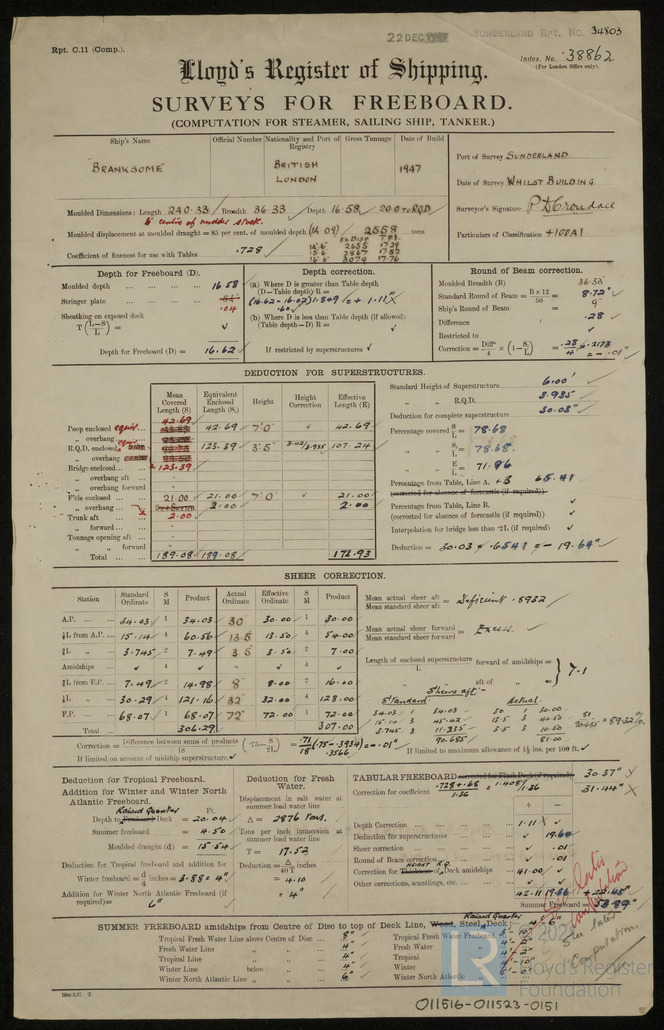 22 DEC 1947
SUNDERLAND RPT. No. 34803
Rpt. C.11 (Comp.).
Index. No. 38862
(For London Office only).
Lloyd's Register of Shipping.
SURVEYS FOR FREEBOARD.
(COMPUTATION FOR STEAMER, SAILING SHIP, TANKER.)
Ship's Name Official Number Nationality and Port of Registry Gross Tonnage Date of Build
"BRANKSOME" BRITISH LONDON 1947
Port of Survey SUNDERLAND
Date of Survey WHILST BUILDING.
Surveyor's Signature P D Crondace
Particulars of Classification +100A1
Moulded Dimensions: Length 240.33 Breadth 36.33 Depth 16.58 20.0 to RQD
to centre of rudder stock.
Moulded displacement at moulded draught = 85 per cent. of moulded depth (14.09) 2558 tons
Ex Disp T.P.I.
14'.6" 2655 17.29
15'.6" 2867 17.52
16'.6" 3079 17.76
Coefficient of fineness for use with Tables .728
Depth for Freeboard (D).
Moulded depth 16.58
Stringer plate .04
Sheathing on exposed deck
T (L-S/L) =
Depth for Freeboard (D) = 16.62
Depth correction.
(a) Where D is greater than Table depth
(D—Table depth) R =
(16.62 - 16.02) 1.849 = + 1.11"
.60
(b) Where D is less than Table depth (if allowed)
(Table depth—D) R =
If restricted by superstructures
Round of Beam correction.
Moulded Breadth (B) 36.33'
Standard Round of Beam = B × 12/50 = 8.72"
Ship's Round of Beam = 9"
Difference .28
Restricted to
Correction = Diff'/4 × (1 - S1/L) = .28/4 × .2173 = - .01"
DEDUCTION FOR SUPERSTRUCTURES.
Mean Covered Length (S) Equivalent Enclosed Length (S1) Height Height Correction Effective Length (E)
Poop enclosed equiv. 42.69 42.69 7'.0" 42.69
„ overhang equiv.
R.Q.D. enclosed 123.39 3'.5 3.42/3.935 107.24
„ overhang
Bridge enclosed 123.39
„ overhang aft
„ overhang forward
F'cle enclosed 21.00 21.00 7'.0" 21.00
„ overhang 2.00 2.00
Trunk aft 2.00
„ forward
Tonnage opening aft
„ „ forward
Total 189.08 189.08 172.93
Standard Height of Superstructure 6.00'
„ „ R.Q.D. 3.935
Deduction for complete superstructure 30.03"
Percentage covered S/L = 78.68
„ „ S1/L = 78.68.
„ „ E/L = 71.96
Percentage from Table, Line A. + B 65.41
(corrected for absence of forecastle (if required))
Percentage from Table, Line B.
(corrected for absence of forecastle (if required))
Interpolation for bridge less than ·2L (if required)
Deduction = 30.03 × .6541 = - 19.64"
SHEER CORRECTION.
Station Standard Ordinate S M Product Actual Ordinate Effective Ordinate S M Product
A.P. 34.03 1 34.03 30 30.00 1 30.00
⅙L from A.P. 15.14 4 60.56 13.5 13.50 4 54.00
⅓L „ 3.745 2 7.49 3.5 3.50 2 7.00
Amidships 4 4
⅓L from F.P. 7.49 2 14.98 8" 8.00 2 16.00
⅙L „ 30.29 4 121.16 32" 32.00 4 128.00
F.P. 68.07 1 68.07 72" 72.00 1 72.00
Total 306.29 307.00
Mean actual sheer aft / Mean standard sheer aft = Deficient .8932
Mean actual sheer forward / Mean standard sheer forward = Excess.
Length of enclosed superstructure forward of amidships / L =
„ „ aft of „ = } 7.1
Sheers aft:-
Standard Actual.
34.03 1 34.03 30 1 30.00
15.14 3 45.42 13.5 3 40.50
3.745 3 11.235 3.5 3 10.50
90.685 81.00
81/90.685 = 89.32%.
Correction = Difference between sums of products/18 (·75 - S/2L) = .71/18 (.75 - .3934) = - .01"
.3566
If limited on account of midship superstructure.
If limited to maximum allowance of 1½ ins. per 100 ft.
Deduction for Tropical Freeboard.
Addition for Winter and Winter North Atlantic Freeboard.
Raised Quarter Ft.
Depth to Freeboard Deck = 20.04
Summer freeboard = 4.50
Moulded draught (d) = 15.54
Deduction for Tropical freeboard and addition for
Winter freeboard = d/4 inches = 3.88 = 4"
Addition for Winter North Atlantic Freeboard (if required) = 6"
Deduction for Fresh Water.
Displacement in salt water at summer load water line
Δ = 2876 Tons.
Tons per inch immersion at summer load water line
T = 17.52
Deduction = Δ/40 T inches
= 4.10
= 4"
TABULAR FREEBOARD corrected for Flush Deck (if required) 30.37"
Correction for coefficient .728 + .68/1.36 = 1.408/1.36 31.44"
+ −
Depth Correction 1.11
Deduction for superstructures 19.64
Sheer correction .01
Round of Beam correction .01
Correction for Thickness of Deck amidships HEIGHT R.Q. 41.00
Other corrections, scantlings, etc.
42.11 19.66 + 22.45"
Summer Freeboard = 53.89"
See later Computation
See later Computation.
SUMMER FREEBOARD amidships from Centre of Disc to top of Deck Line, Wood, Steel, Deck :— Raised Quarter 4'-6"
Tropical Fresh Water Line above Centre of Disc 8"
Fresh Water Line „ „ 4"
Tropical Line „ „ 4"
Winter Line below „ „ 4"
Winter North Atlantic Line „ „ 6"
Tropical Fresh Water Freeboard
Fresh Water „
Tropical „
Winter „
Winter North Atlantic „
LR
Lloyd's Register
Foundation
011516-011523-0151